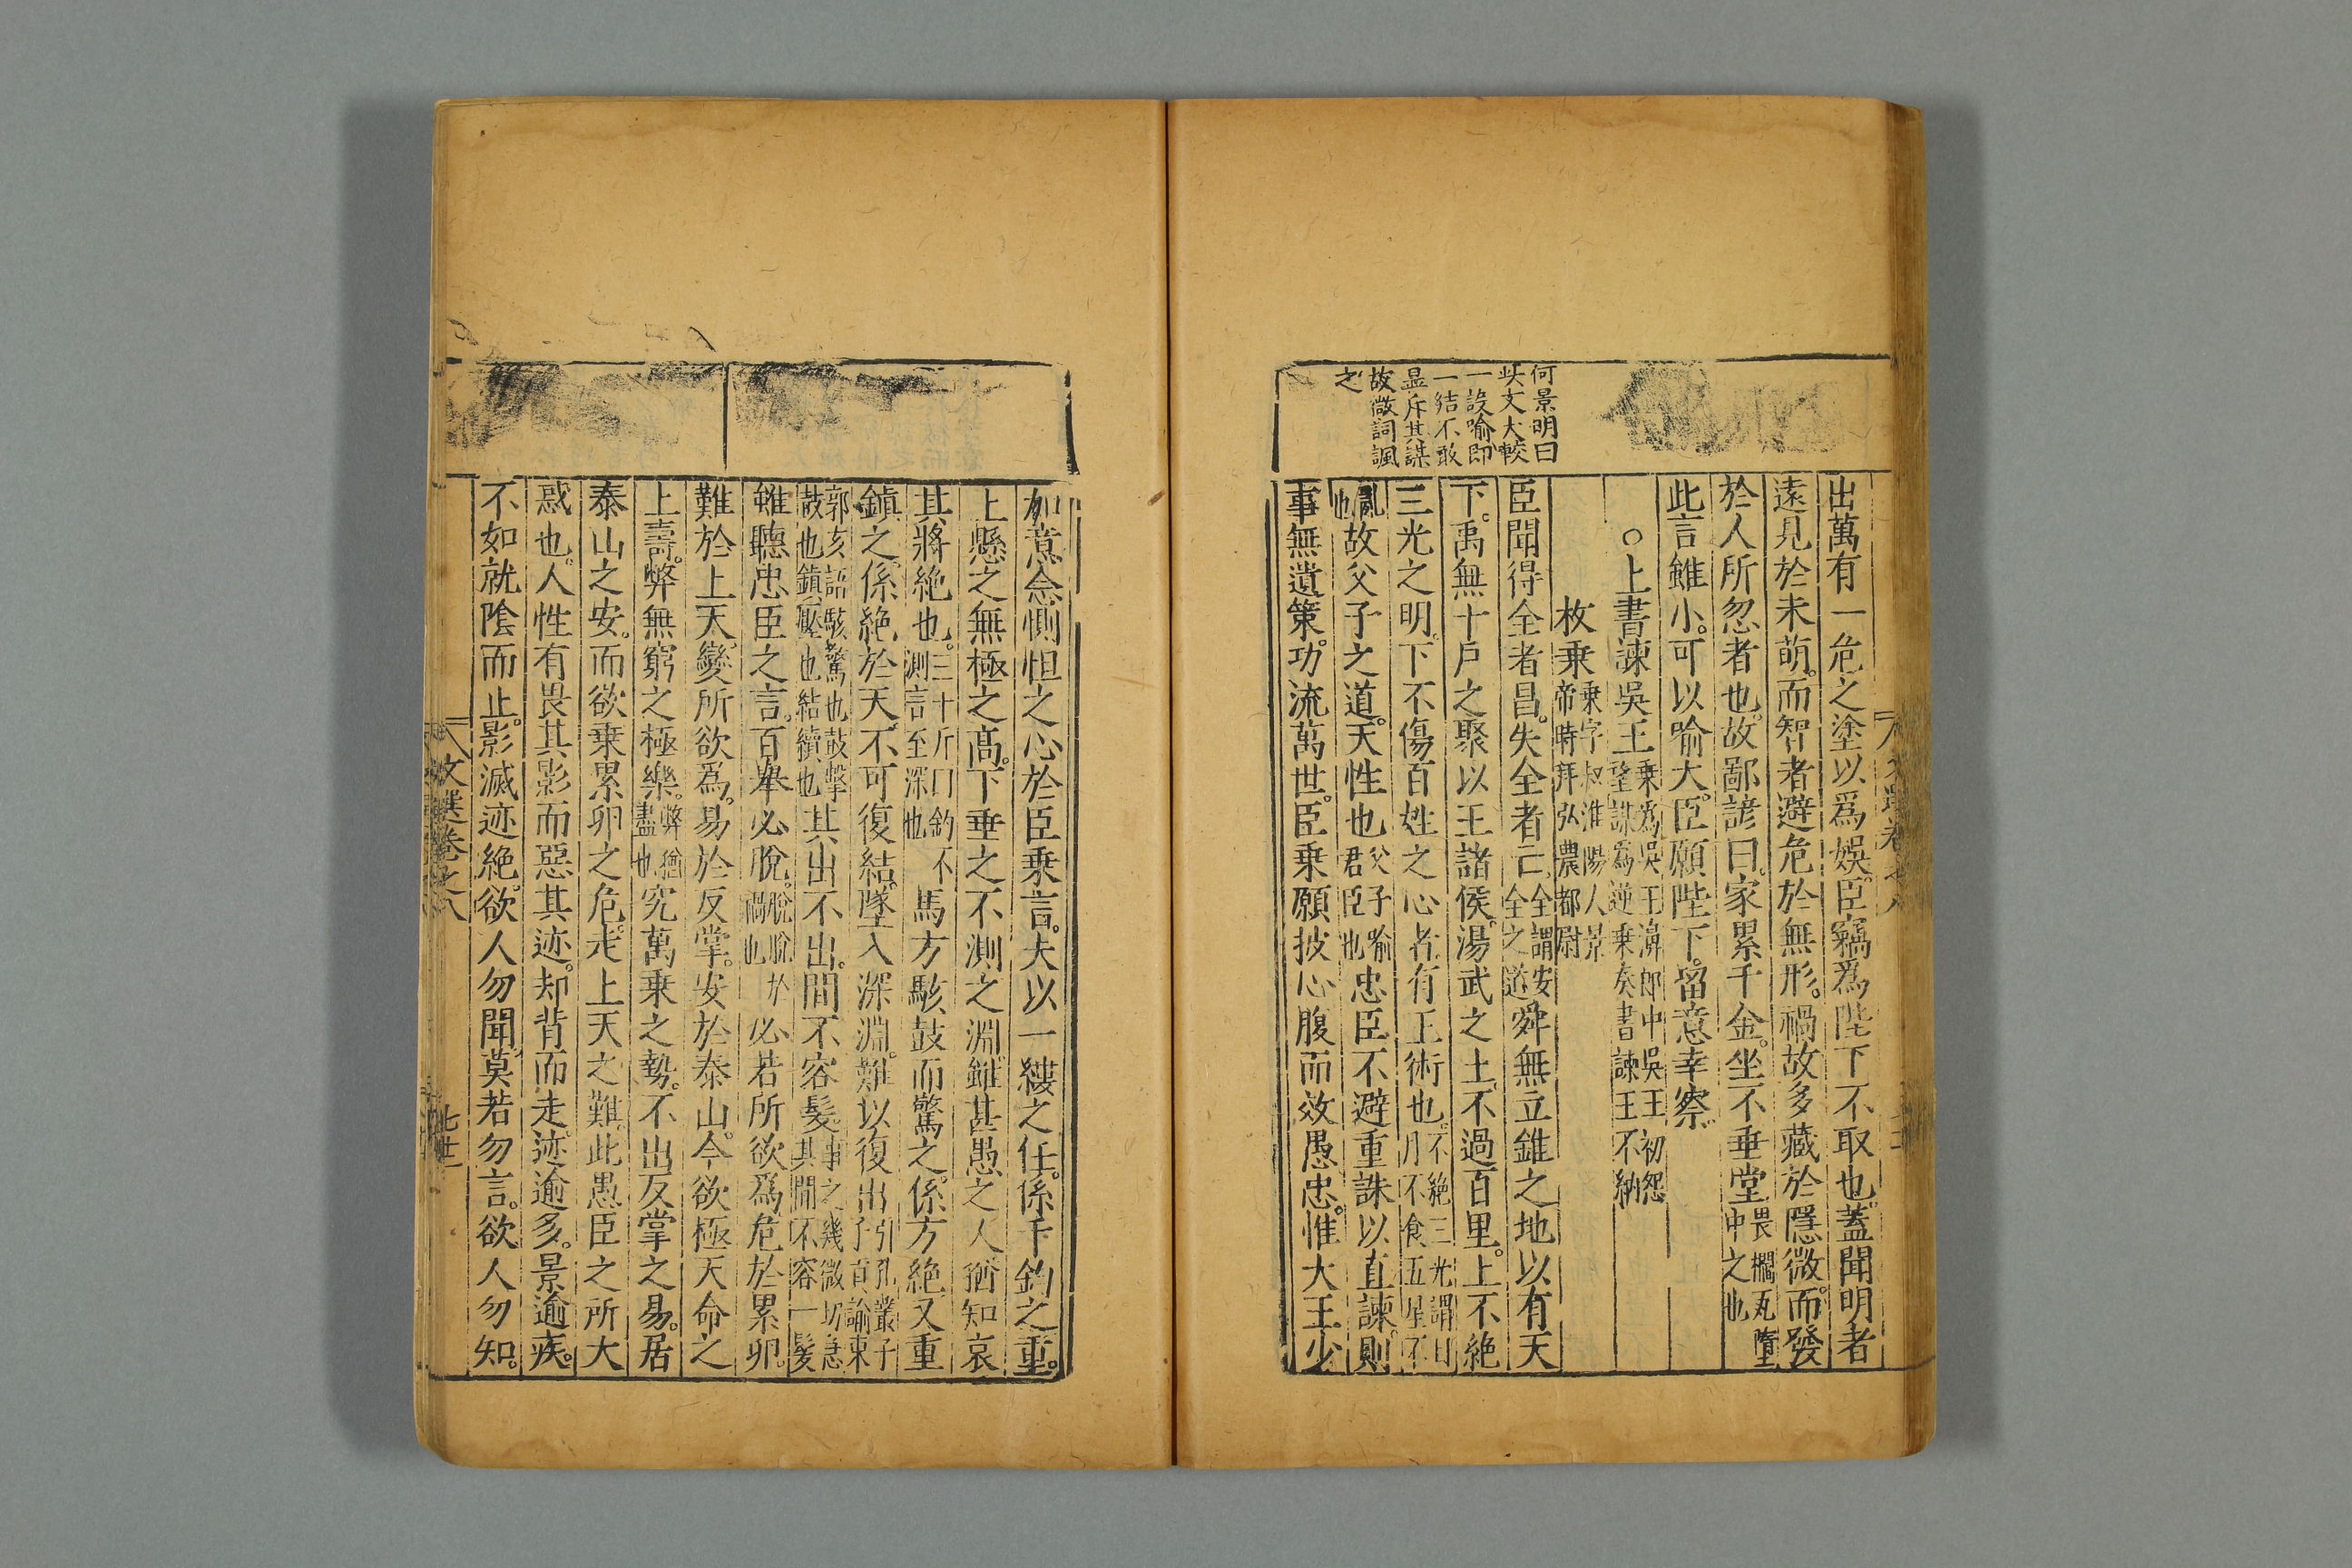 何景明曰
此文大較
一設喻即
一結不敢
显斥其謀
故微詞諷
之
出萬有一危之塗以爲娛臣竊爲陛下不取也。蓋聞明者
遠見於未萌。而智者避危於無形。禍故多藏於隱微。而發
於人所忽者也。故鄙諺曰。家累千金。坐不垂堂。畏櫩瓦墮中之也
此言雖小。可以喻大。臣願陛下。留意幸察。
○上書諫吳王乗爲吳王濞郎中吳王初怨望謀爲逆乗奏書諫王不納
枚乗乗字叔淮陽人景帝時拜弘農都尉
臣聞得全者昌。失全者亡。全謂安全之道舜無立錐之地以有天
下。禹無十戶之聚以王諸侯。湯武之土。不過百里。上不絶
三光之明。下不傷百姓之心者。有王術也。不絶三光謂日月不食五星不
亂也故父子之道。天性也父子喻君臣也忠臣不避重誅以直諫。則
事無遺策。功流萬世。臣乗願披心腹而效愚忠。惟大王少
加意念惻怛之心於臣乗言。夫以一縷之任。係千鈞之重。
上懸之無極之高。下垂之不測之淵。雖甚愚之人猶知哀
其將絶也。三十斤曰鈞不測言至深也馬方駭鼓而驚之。係方絶又重
鎮之。係絶於天。不可復結。墜入深淵。難以復出引孔叢子子貢諭東
郭亥語駭驚也鼓擊也鎮壓也結續也其出不出。間不容髮。事之幾微切急其間不容一髮
雖聽忠臣之言。百舉必脫。脫脫於禍也必若所欲爲。危於累卵。
難於上天。變所欲爲。易於反掌。安於泰山。今欲極天命之
上壽。弊無窮之極樂。弊猶盡也究萬乗之勢。不出反掌之易。居
泰山之安。而欲乗累卵之危。走上天之難。此愚臣之所大
惑也。人性有畏其影而惡其迹。却背而走。迹逾多。景逾疾。
不如就陰而止。影滅迹絶。欲人勿聞。莫若勿言。欲人勿知。
文選卷之八